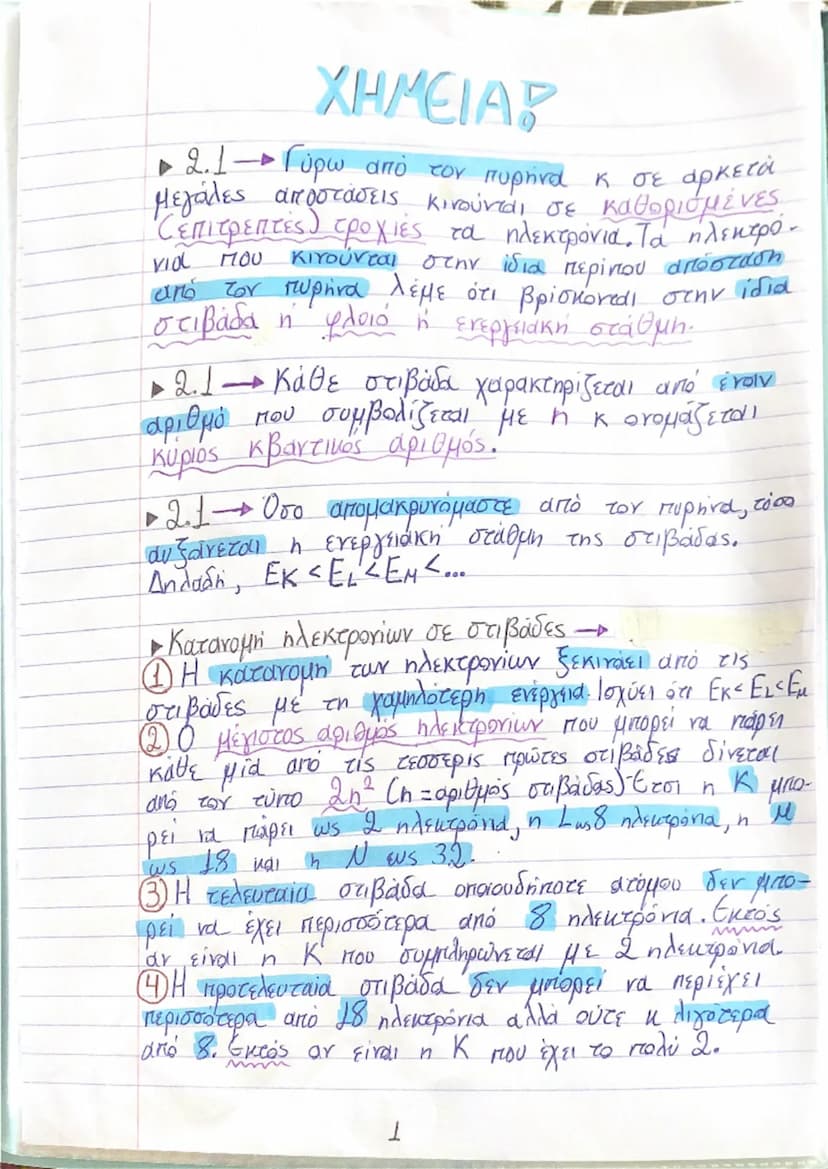 ΧΗΜΕΙΑ!
▸ 2.1 → Γύρω από τον πυρήνα κ σε αρκετά
μεγάλες αποστάσεις κινούνται σε καθορισμένες
(επιτρεπτές) τροχιές τα ηλεκτρόνια. Τα ηλεκτρό-
νια που κινούνται στην ίδια περίπου απόσταση
από τον πυρήνα λέμε ότι βρίσκονται στην ίδια
στιβάδα ή φλοιό ή ενεργειακή στάθμη.
▸ 2.1 → Κάθε στιβάδα χαρακτηρίζεται από έναν
αριθμό που συμβολίζεται με n κ ονομάζεται
κύριος κβαντικός αριθμός.
▸ 2.1 → Όσο απομακρυνόμαστε από τον πυρήνα, τόσο
αυξάνεται η ενεργειακή στάθμη της στιβάδας.
Δηλαδή, EK < EL < EM < ...
▸ Κατανομή ηλεκτρονίων σε στιβάδες →
① Η κατανομή των ηλεκτρονίων ξεκινάει από τις
στιβάδες με τη χαμηλότερη ενέργεια. Ισχύει ότι EK < EL < EM
② Ο μέγιστος αριθμός ηλεκτρονίων που μπορεί να πάρει
κάθε μία από τις τέσσερις πρώτες στιβάδες δίνεται
από τον τύπο 2n² (n = αριθμός στιβάδας). Έτσι η K μπο-
ρεί να πάρει ως 2 ηλεκτρόνια, η L ως 8 ηλεκτρόνια, η M
ως 18 και η N ως 32.
③ Η τελευταία στιβάδα οποιουδήποτε ατόμου δεν μπο-
ρεί να έχει περισσότερα από 8 ηλεκτρόνια. Εκτός
αν είναι η K που συμπληρώνεται με 2 ηλεκτρόνια.
④ Η προτελευταία στιβάδα δεν μπορεί να περιέχει
περισσότερα από 18 ηλεκτρόνια αλλά ούτε κ λιγότερα
από 8. Εκτός αν είναι η K που έχει το πολύ 2.
1